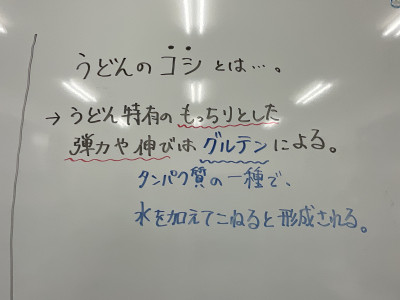 うどんのコシとは…。
→うどん特有のもっちりとした
弾力や伸びはグルテンによる。
タンパク質の一種で、
水を加えてこねると形成される。